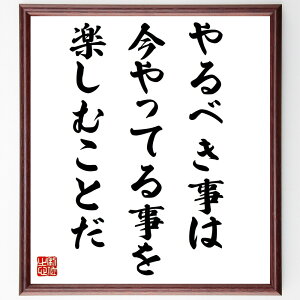 やるべき事は
今やってる事を
楽しむことだ